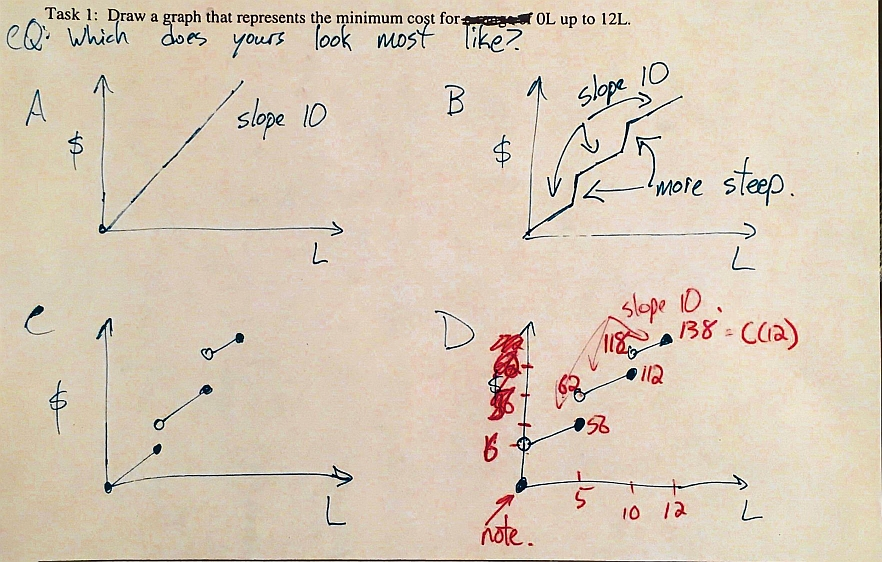 Task 1: Draw a graph that represents the minimum cost for 0L up to 12L.
CQ: Which does yours look most like?
A
$
slope 10
L
B
$
slope 10
more steep.
L
C
$
L
D
$
slope 10.
138 = C(12)
118
112
62
56
6
5
10
12
L
note.